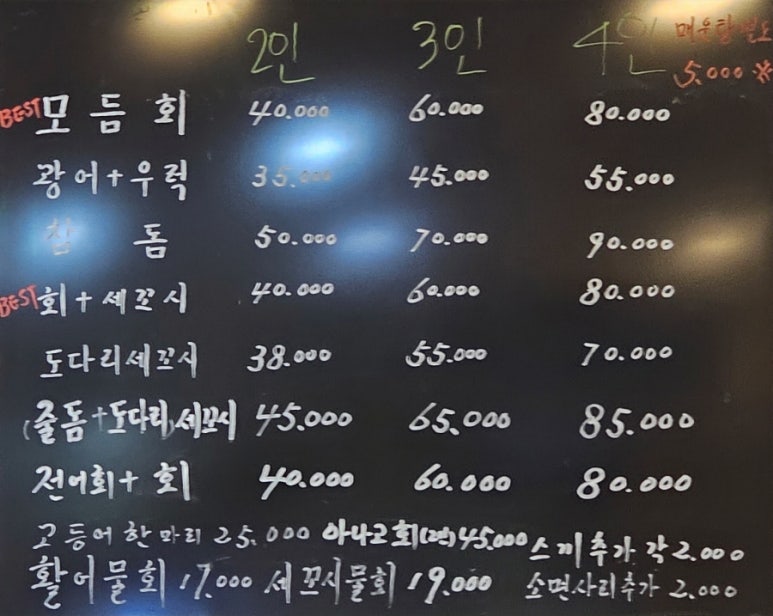 2인 3인 4인 매운탕별도
5.000 ※
BEST 모듬회 40.000 60.000 80.000
광어+우럭 35.000 45.000 55.000
참돔 50.000 70.000 90.000
BEST 회+세꼬시 40.000 60.000 80.000
도다리세꼬시 38.000 55.000 70.000
(줄돔+도다리)세꼬시 45.000 65.000 85.000
전어회+회 40.000 60.000 80.000
고등어 한마리 25.000 아나고회(2인)45.000 스끼추가 각 2.000
활어물회 17.000 세꼬시물회 19.000 소면사리추가 2.000